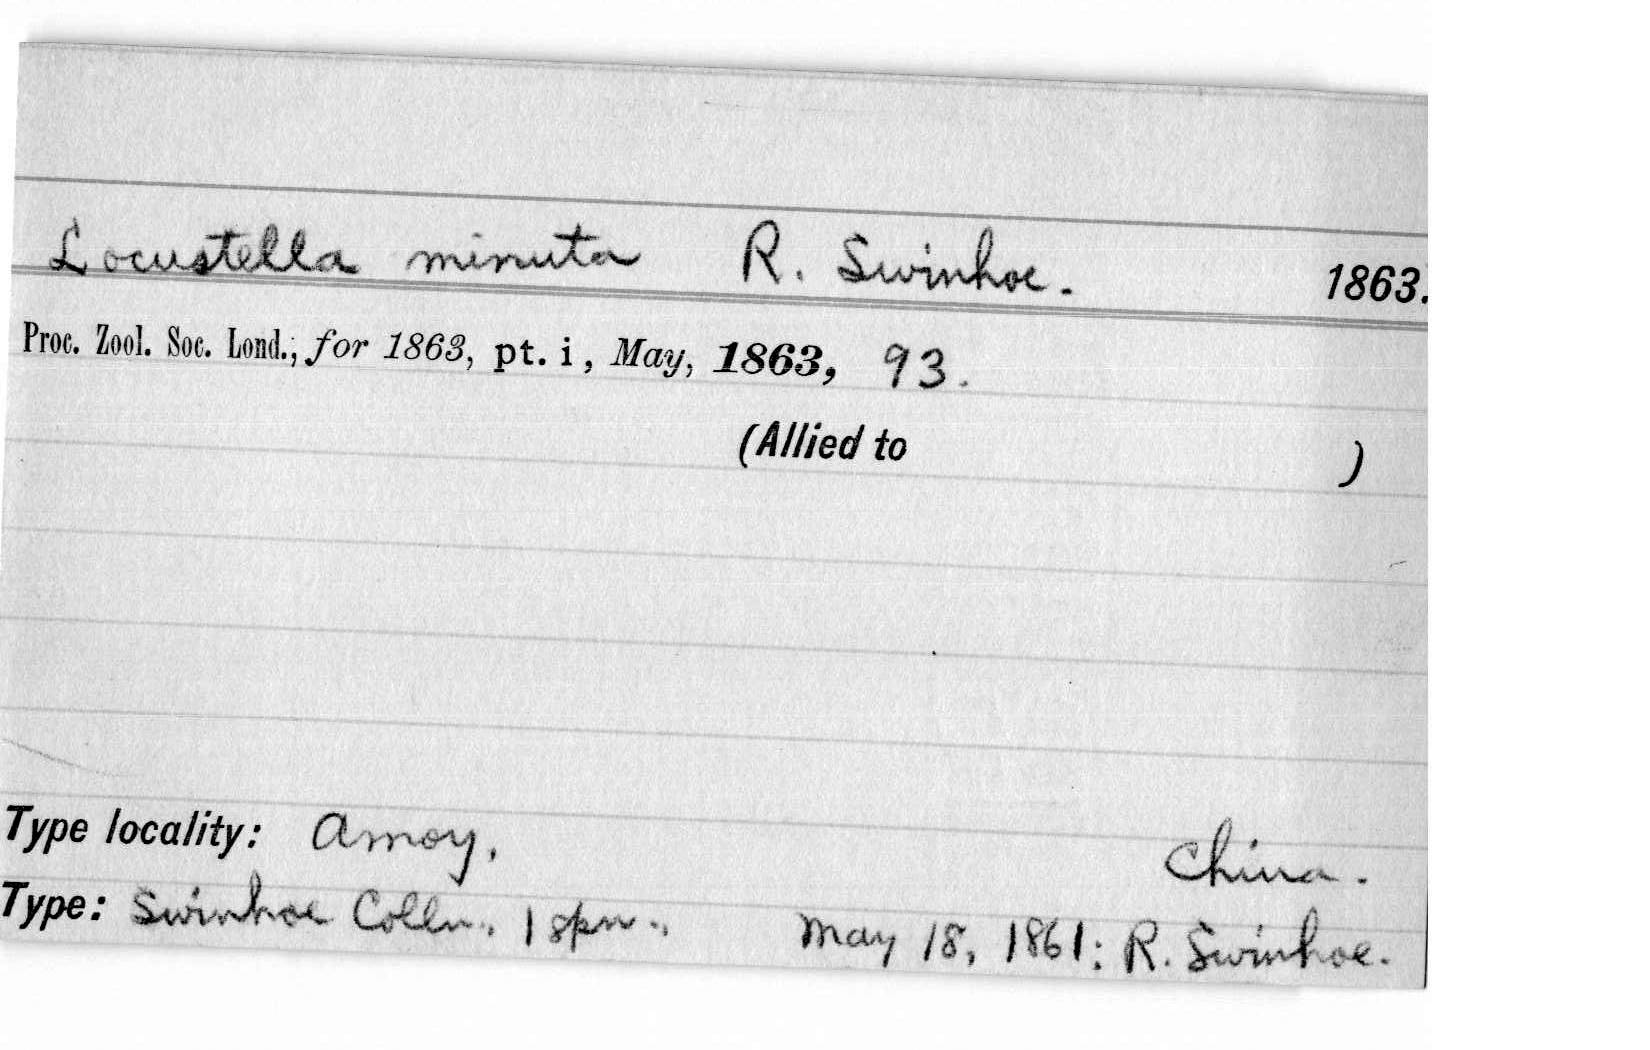 Locustella minuta R. Swinhoe. 1863.
Proc. Zool. Soc. Lond., for 1863, pt. i, May, 1863, 93.
(Allied to )
Type locality: Amoy, China.
Type: Swinhoe Colln., 1 spn., May 18, 1861: R. Swinhoe.